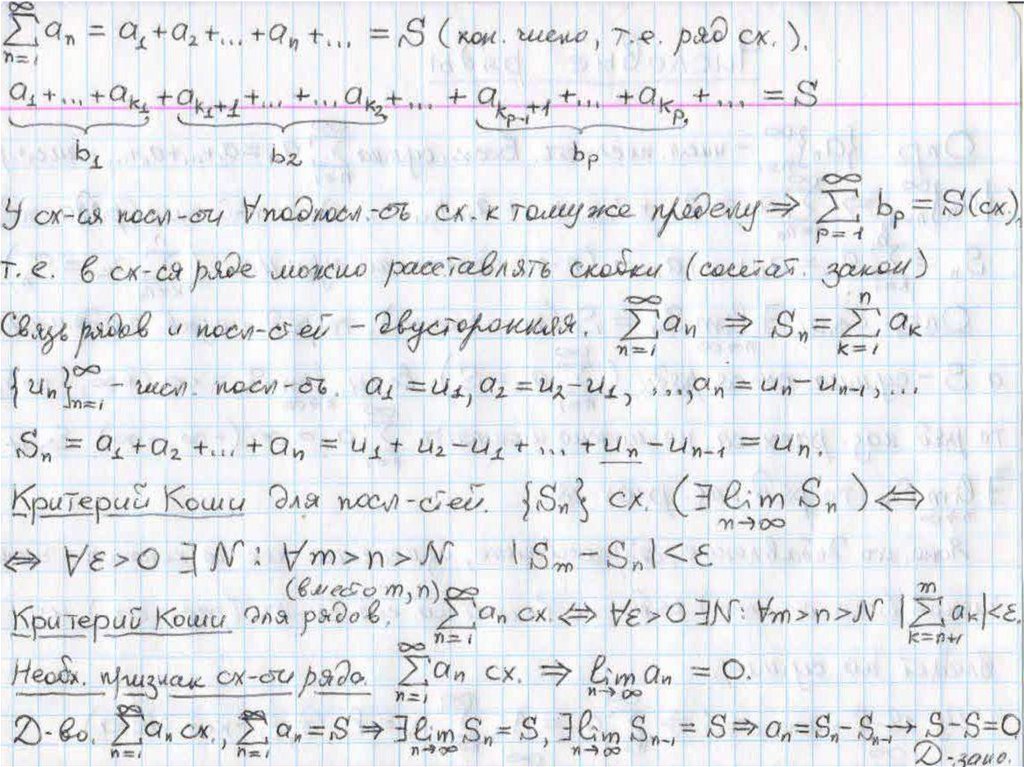 ∞∑n=1 aₙ = a₁ + a₂ + ... + aₙ + ... = S (кон. число, т.е. ряд сх.).
a₁ + ... + a_{k₁} + a_{k₁+1} + ... + ... a_{k₂} + ... + a_{k_{p-1}+1} + ... + a_{k_p} + ... = S
b₁ b₂ b_p
У сх-ся посл-ти ∀ подпосл-ть сх. к тому же пределу ⇒ ∞∑p=1 b_p = S (сх),
т.е. в сх-ся ряде можно расставлять скобки (сочетат. закон)
Связь рядов и посл-стей – двусторонняя. ∞∑n=1 aₙ ⇒ Sₙ = n∑k=1 a_k
{uₙ}∞n=1 – числ. посл-ть. a₁ = u₁, a₂ = u₂ – u₁, ..., aₙ = uₙ – uₙ₋₁, ...
Sₙ = a₁ + a₂ + ... + aₙ = u₁ + u₂ – u₁ + ... + uₙ – uₙ₋₁ = uₙ.
Критерий Коши для посл-стей. {Sₙ} сх. (∃ lim n→∞ Sₙ) ⇔
⇔ ∀ε > 0 ∃ N : ∀m > n > N |Sₘ – Sₙ| < ε
(вместо m, n)
Критерий Коши для рядов. ∞∑n=1 aₙ сх. ⇔ ∀ε > 0 ∃N : ∀m > n > N |m∑k=n+1 a_k| < ε.
Необх. признак сх-ти ряда. ∞∑n=1 aₙ сх. ⇒ lim n→∞ aₙ = 0.
Д-во. ∞∑n=1 aₙ сх., ∞∑n=1 aₙ = S ⇒ ∃ lim n→∞ Sₙ = S, ∃ lim n→∞ Sₙ₋₁ = S ⇒ aₙ = Sₙ – Sₙ₋₁ → S – S = 0
Д-зано.